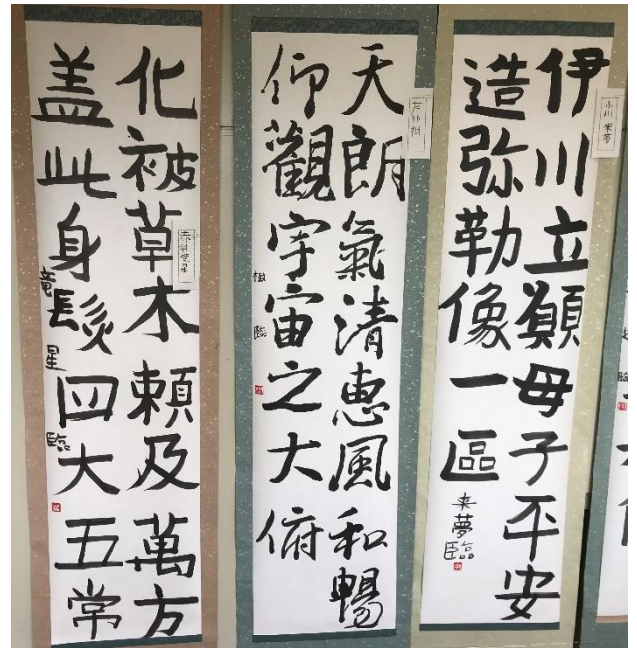 伊川立願母子平安
造弥勒像一區
来夢臨
小川来夢
天朗氣清惠風和暢
仰觀宇宙之大俯
樹臨
化被草木賴及萬方
盖此身髮四大五常
竜星臨